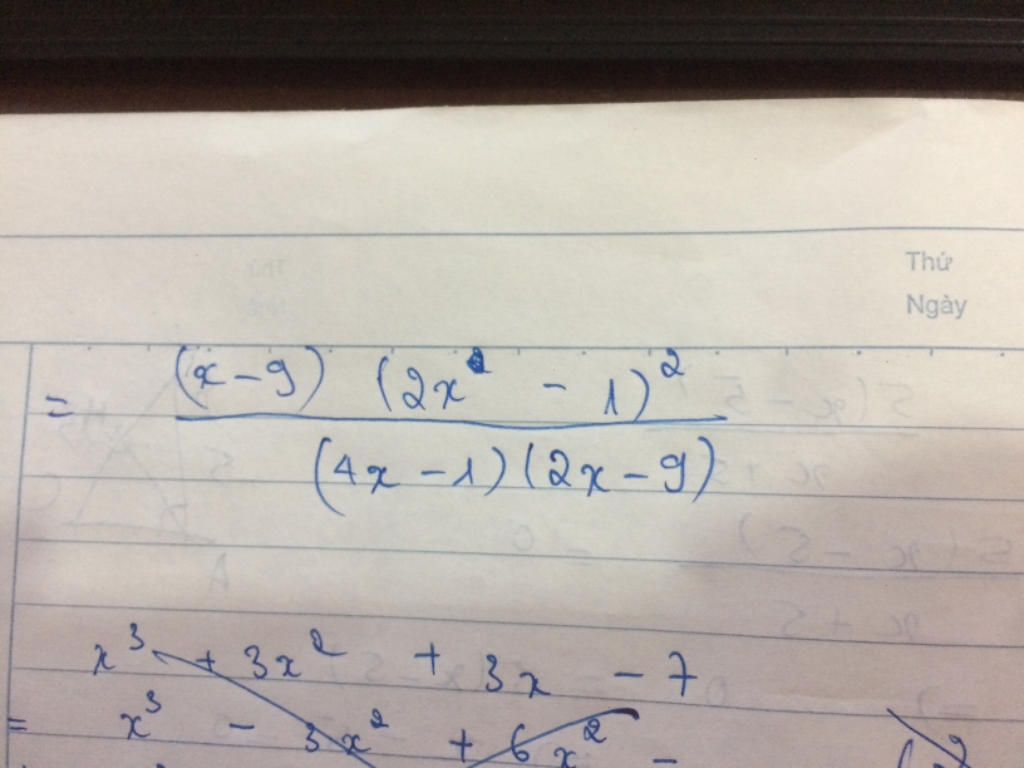 Thứ
Ngày
= (x - 9) (2x² - 1)²
(4x - 1)(2x - 9)
x³ + 3x² + 3x - 7
= x³ - 3x² + 6x² -